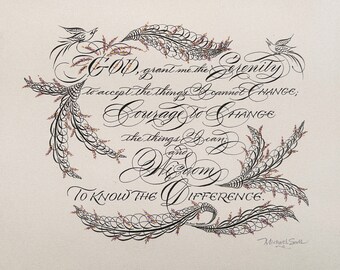 GOD, grant me the Serenity
to accept the things I cannot CHANGE;
Courage to CHANGE
the things I can
and
Wisdom
TO KNOW THE DIFFERENCE.